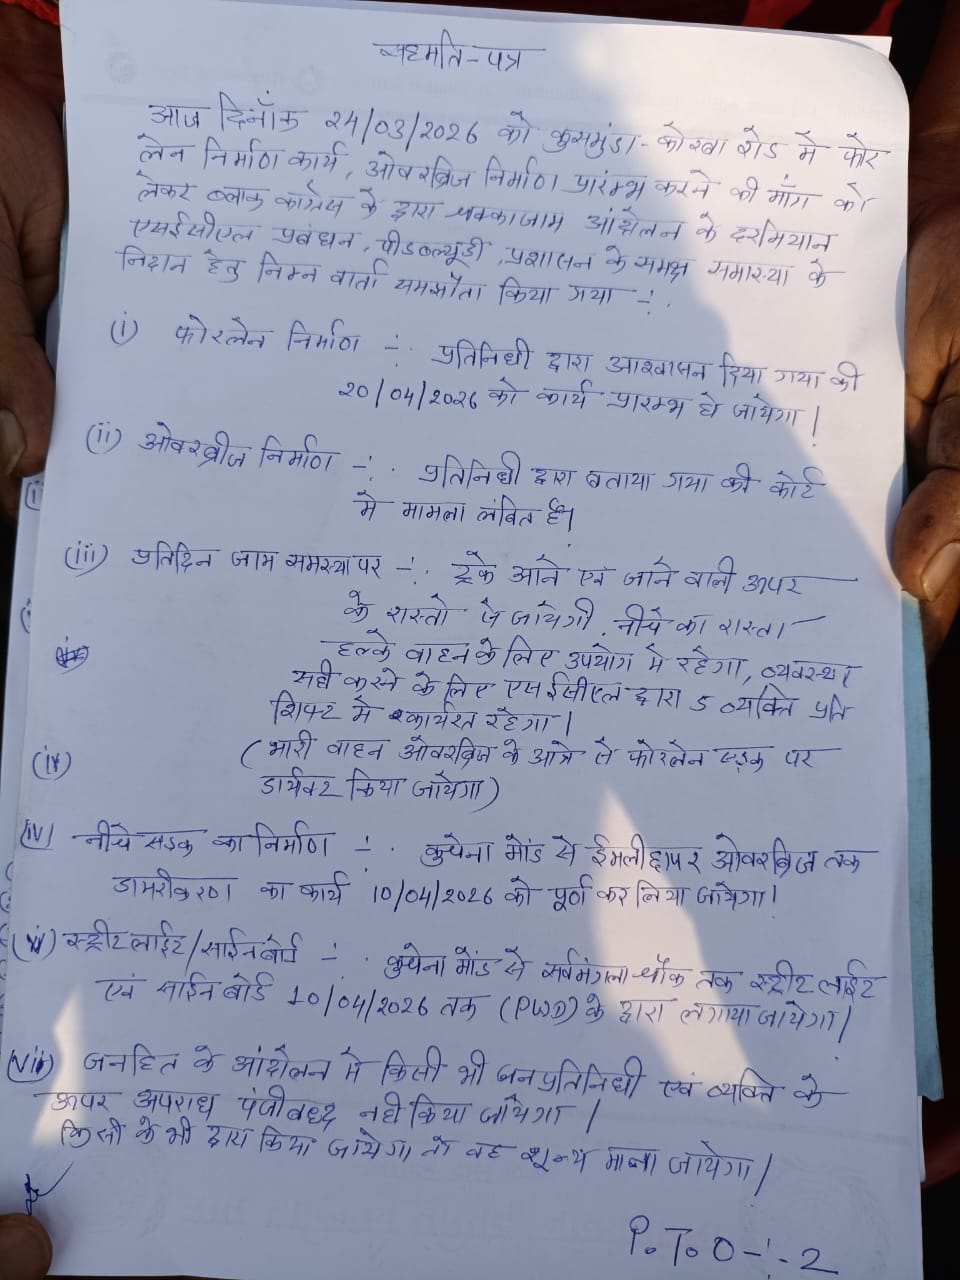 सहमति-पत्र
आज दिनाँक 24/03/2026 को कुसमुंडा-कोरबा रोड मे फोर
लेन निर्माण कार्य, ओवरब्रिज निर्माण प्रारंम्भ करने की माँग को
लेकर ब्लाक कांग्रेस के द्वारा चक्काजाम आंदोलन के दरमियान
एसईसीएल प्रबंधन, पीडब्ल्यूडी, प्रशासन के समक्ष समास्या के
निदान हेतु निम्न वार्ता समझौता किया गया -:.
(i) फोरलेन निर्माण -:. प्रतिनिधी द्वारा आश्वासन दिया गया की
20/04/2026 को कार्य प्रारम्भ हो जायेगा।
(ii) ओवरब्रीज निर्माण -:. प्रतिनिधी द्वारा बताया गया की कोर्ट
मे मामला लंबित है।
(iii) प्रतिदिन जाम समस्या पर -:. ट्रके आने एवं जाने वाली ऊपर
के रास्तो से जायेगी, नीचे का रास्ता
हल्के वाहन के लिए उपयोग मे रहेगा, व्यवस्था
सही करने के लिए एसईसीएल द्वारा 5 व्यक्ति प्रति
शिफ्ट मे कार्यरत रहेगा।
(iv) (भारी वाहन ओवरब्रिज के आगे से फोरलेन सड़क पर
डायवर्ट किया जायेगा)
(iv) नीचे सड़क का निर्माण -:. कुचेना मोंड से ईमलीछापर ओवरब्रिज तक
डामरीकरण का कार्य 10/04/2026 को पूर्ण कर लिया जायेगा।
(vi) स्ट्रीट लाईट/साईन बोर्ड -:. कुचेना मोंड से सर्वमंगला चौक तक स्ट्रीट लाईट
एवं साईन बोर्ड 10/04/2026 तक (PWD) के द्वारा लगाया जायेगा।
(vii) जनहित के आंदोलन मे किसी भी जनप्रतिनिधी एवं व्यक्ति के
ऊपर अपराध पंजीबध्द नही किया जायेगा।
किसी के भी द्वारा किया जायेगा तो वह शून्य माना जायेगा।
P.T.O -:- 2